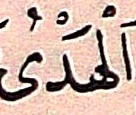 اَلْهَدْىُ